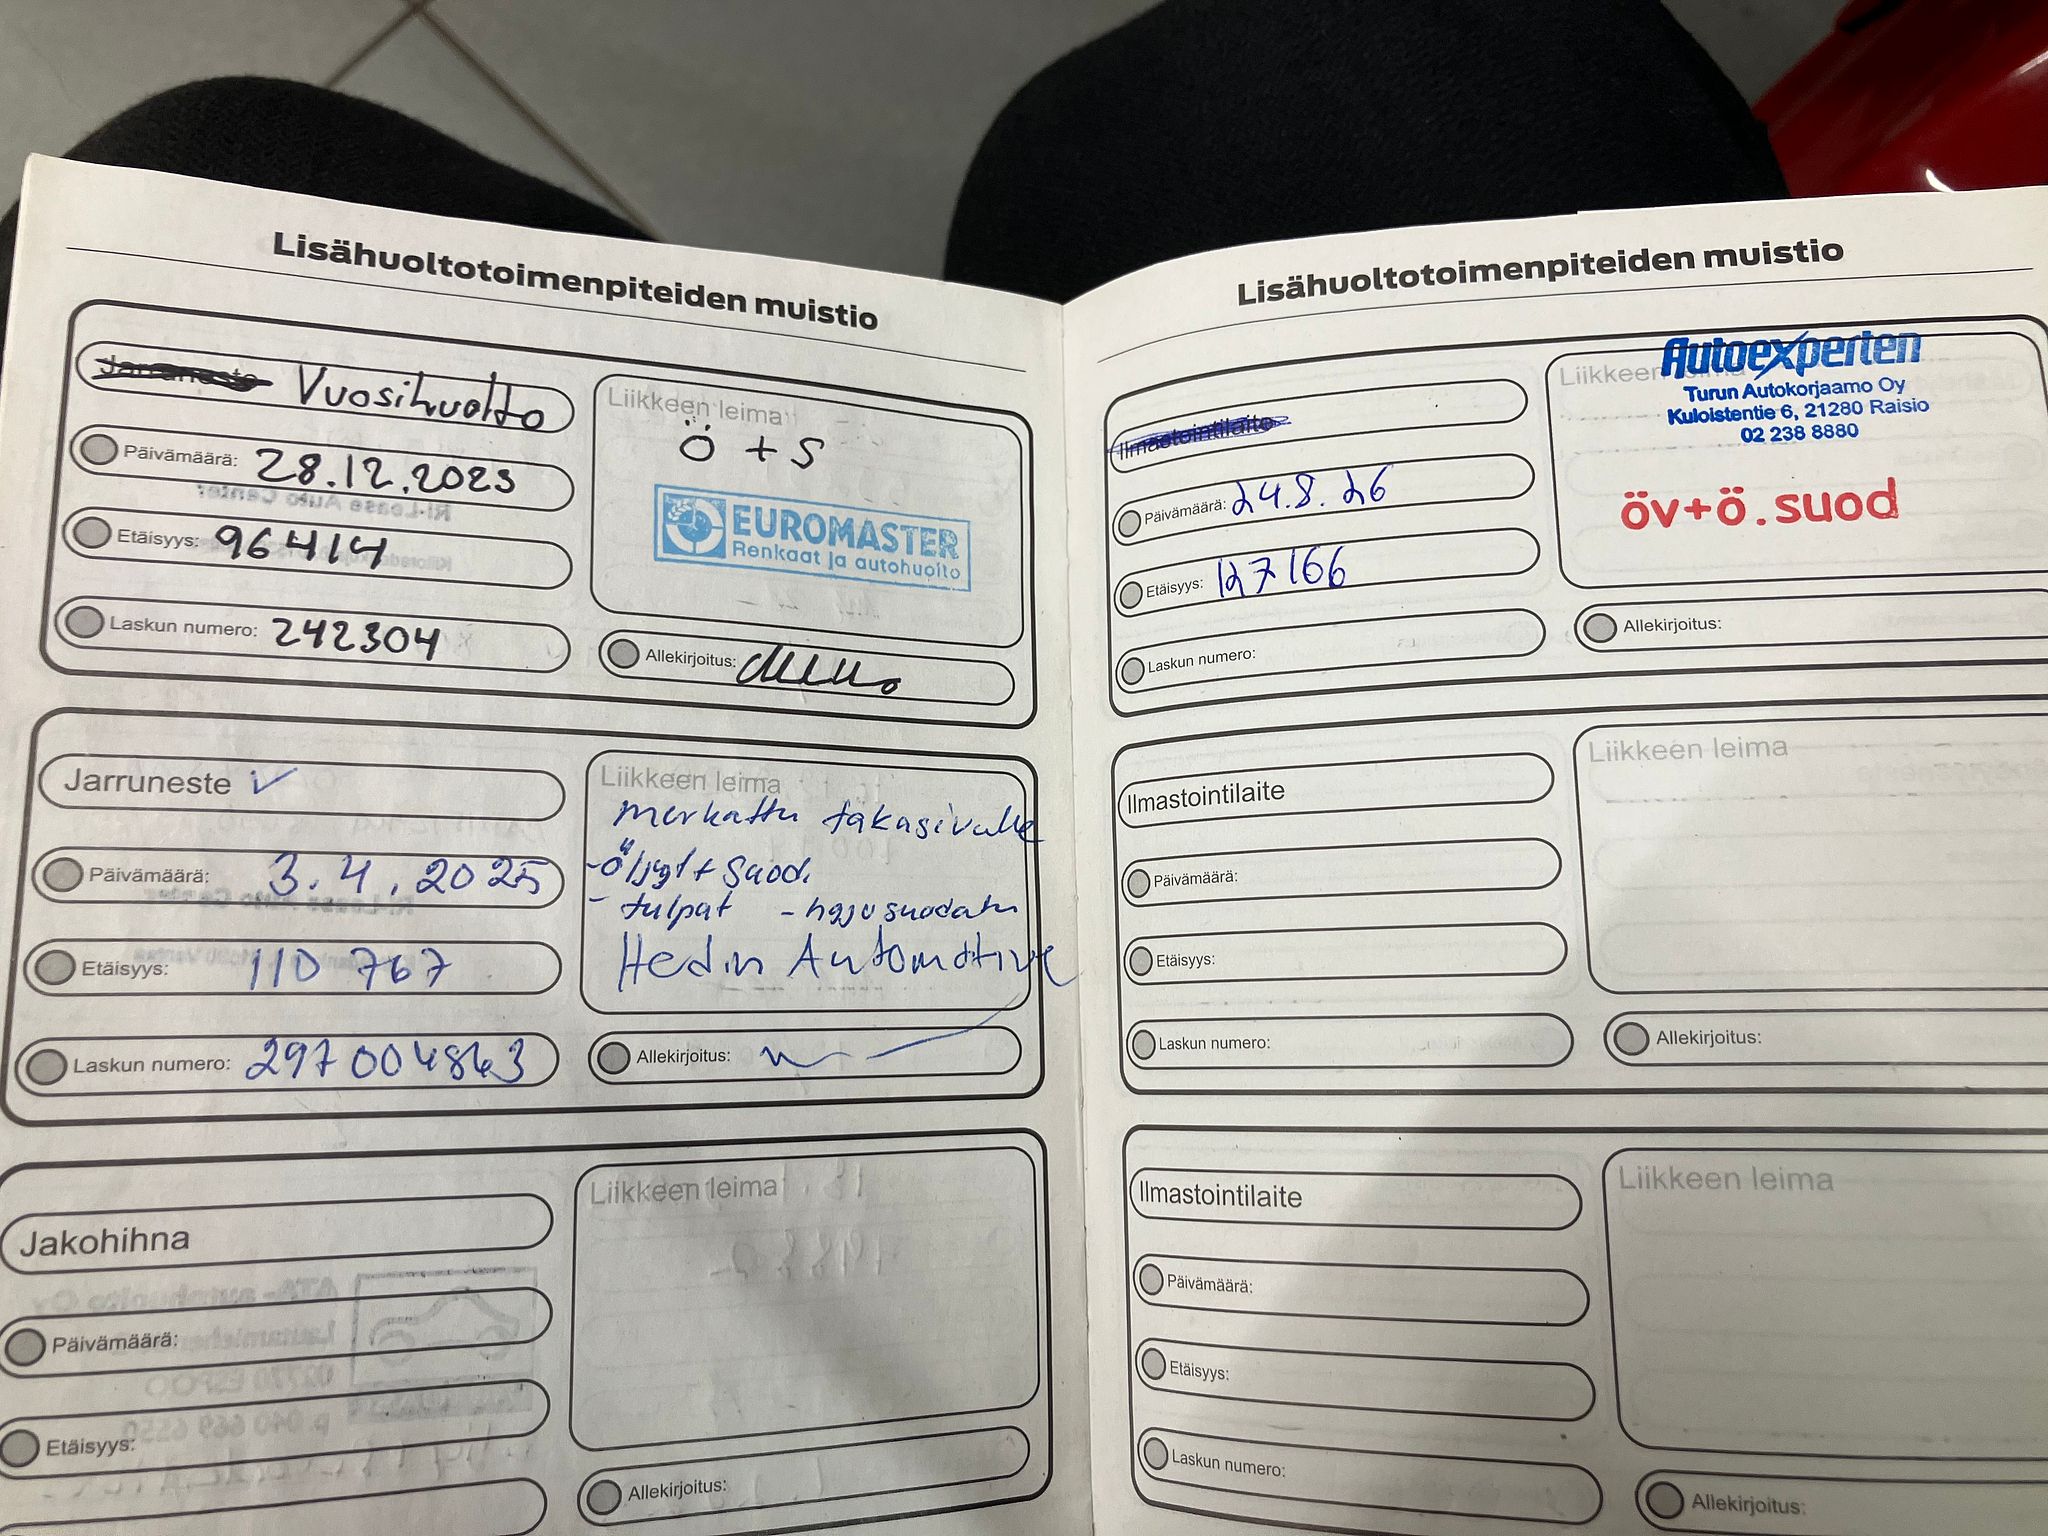 Lisähuoltotoimenpiteiden muistio
Jarruneste Vuosihuolto
Päivämäärä: 28.12.2023
Etäisyys: 96414
Laskun numero: 242304
Liikkeen leima
Ö + S
EUROMASTER
Renkaat ja autohuolto
Allekirjoitus:
Jarruneste ✓
Päivämäärä: 3.4.2025
Etäisyys: 110 767
Laskun numero: 297004863
Liikkeen leima
merkattu takasivulle
- Öljyt + Suod.
- tulpat - hajusuodatin
Hedin Automotive
Allekirjoitus:
Jakohihna
Päivämäärä:
Etäisyys:
Liikkeen leima
Allekirjoitus:
Lisähuoltotoimenpiteiden muistio
Ilmastointilaite
Päivämäärä: 24.8.26
Etäisyys: 127166
Laskun numero:
Liikkeen leima
Autoexperten
Turun Autokorjaamo Oy
Kuloistentie 6, 21280 Raisio
02 238 8880
öv+ö.suod
Allekirjoitus:
Ilmastointilaite
Päivämäärä:
Etäisyys:
Laskun numero:
Liikkeen leima
Allekirjoitus:
Ilmastointilaite
Päivämäärä:
Etäisyys:
Laskun numero:
Liikkeen leima
Allekirjoitus: